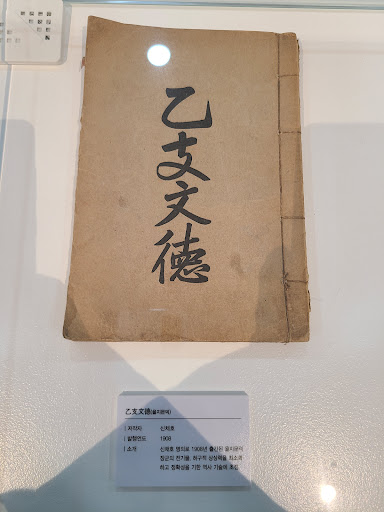 乙支文德
乙支文德(을지문덕)
저작자 신채호
발행연도 1908
소개 신채호 명의로 1908년 출간된 을지문덕
장군의 전기물. 허구적 상상력을 최소화
하고 정확성을 기한 역사 기술에 초점